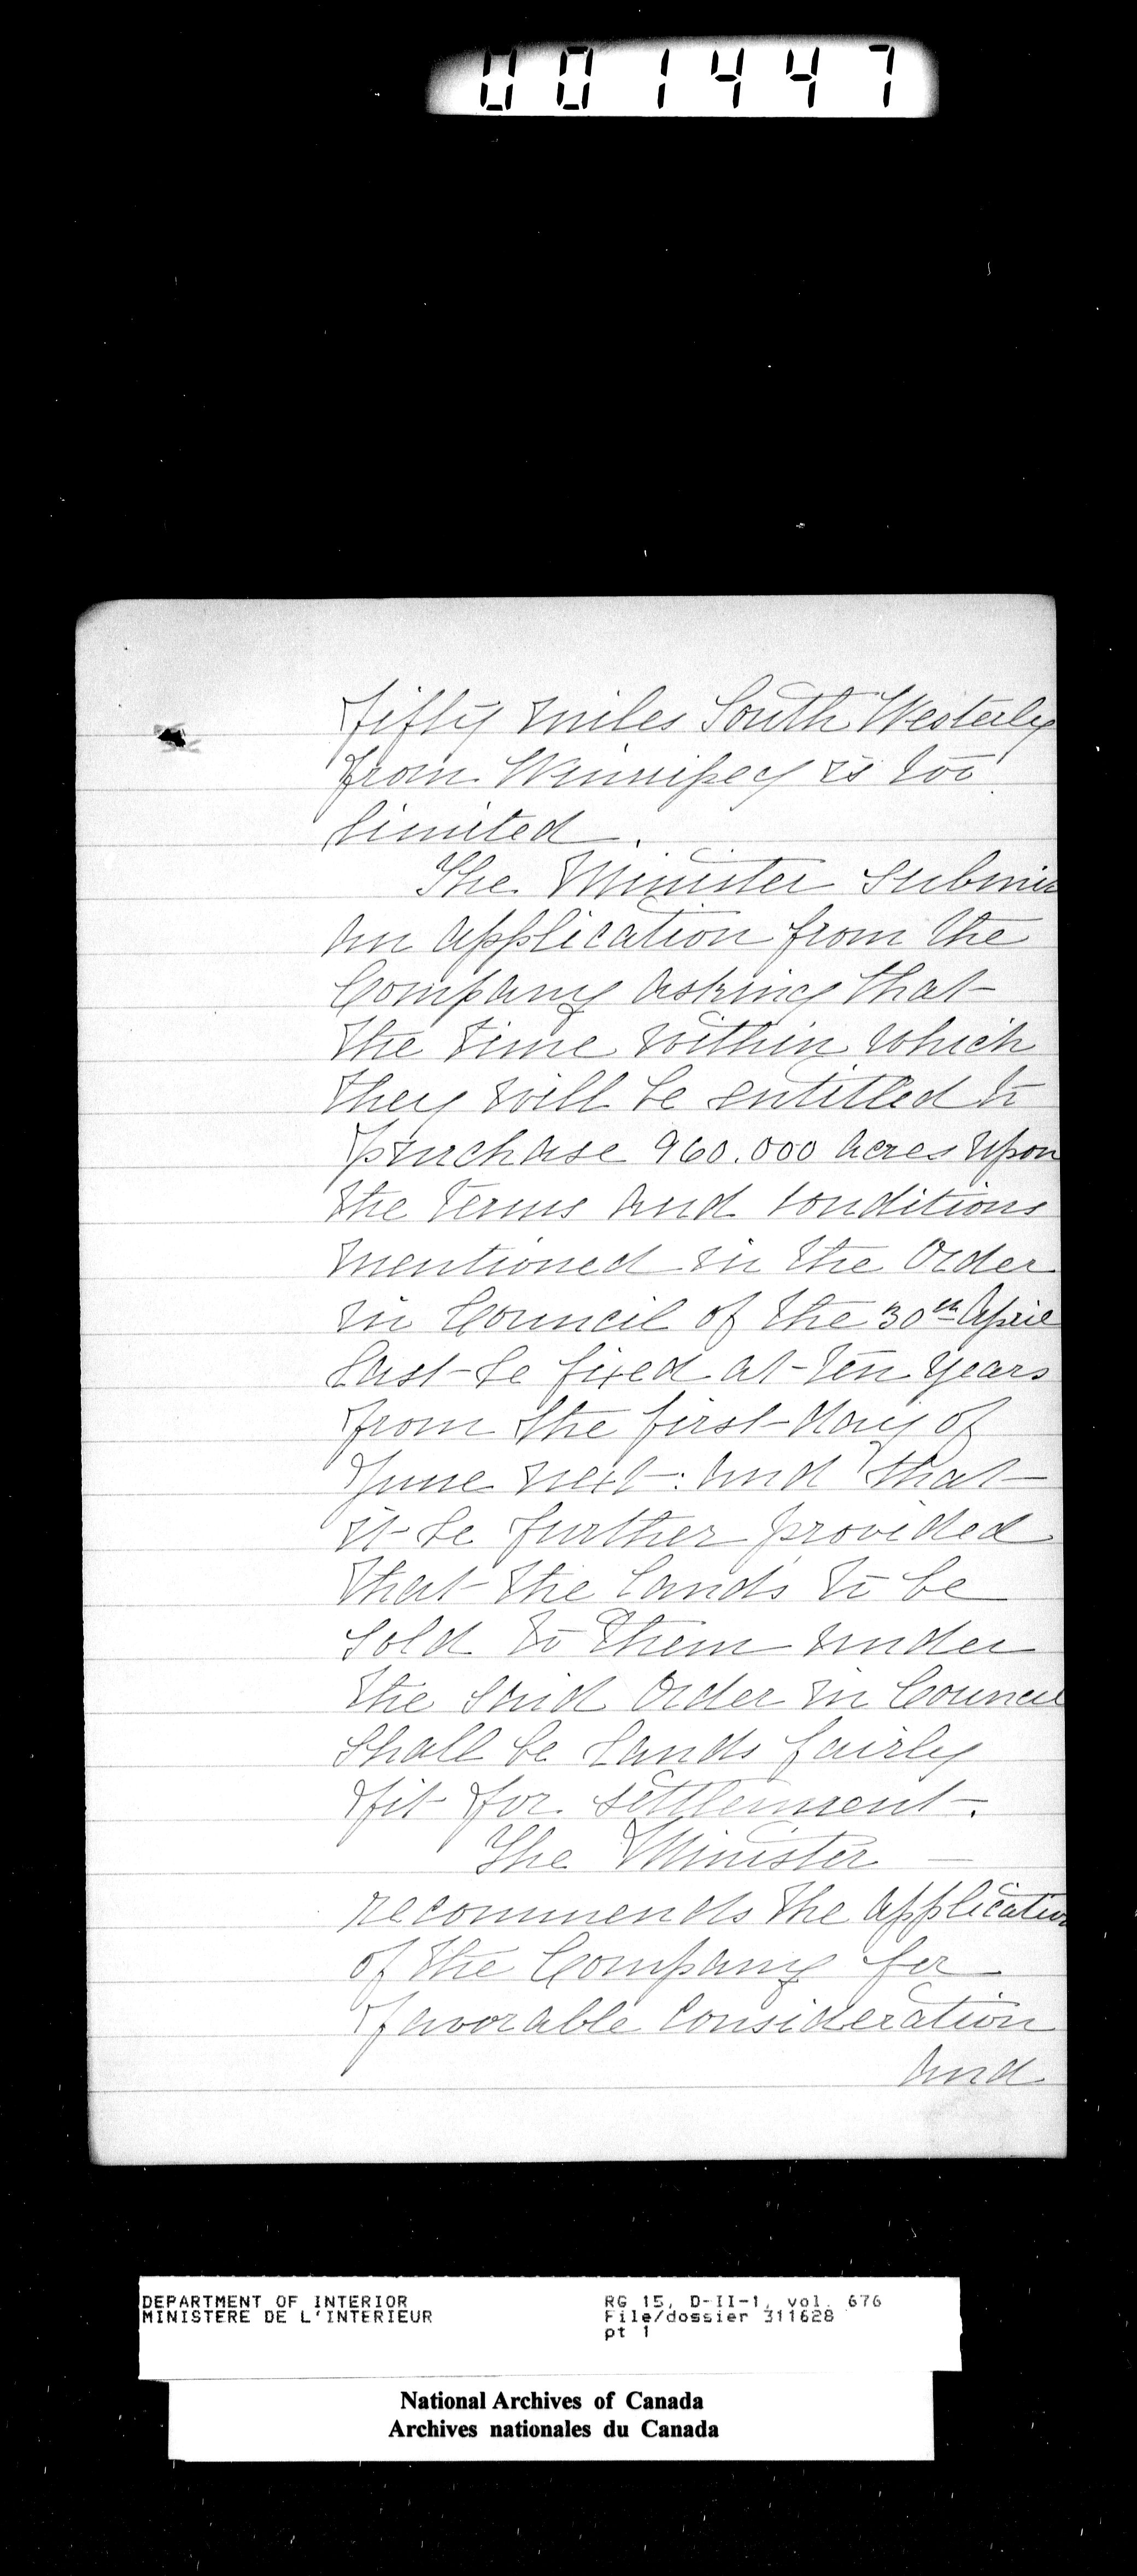 001447
fifty miles South Westerly
from Winnipeg is too
limited.
The Minister submi
an application from the
Company asking that
the time within which
they will be entitled to
purchase 960.000 acres upon
the terms and conditions
mentioned in the Order
in Council of the 30th April
last be fixed at ten years
from the first day of
June next: and that
it be further provided
that the lands to be
sold to them under
the said Order in Council
shall be lands fairly
fit for settlement.
The Minister —
recommends the application
of the Company for
favorable consideration
and
DEPARTMENT OF INTERIOR RG 15, D-II-1, vol. 676
MINISTERE DE L'INTERIEUR File/dossier 311628
pt 1
National Archives of Canada
Archives nationales du Canada